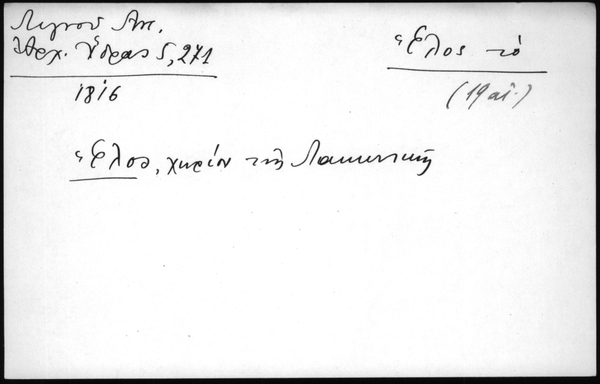 Λιγνοῦ Ἀντ.
Ἀρχ. Ὕδρας 5, 271
1816
Ἕλος τὸ
(19 αἰ.)
Ἕλος, χωρίον τῆς Λακωνικῆς